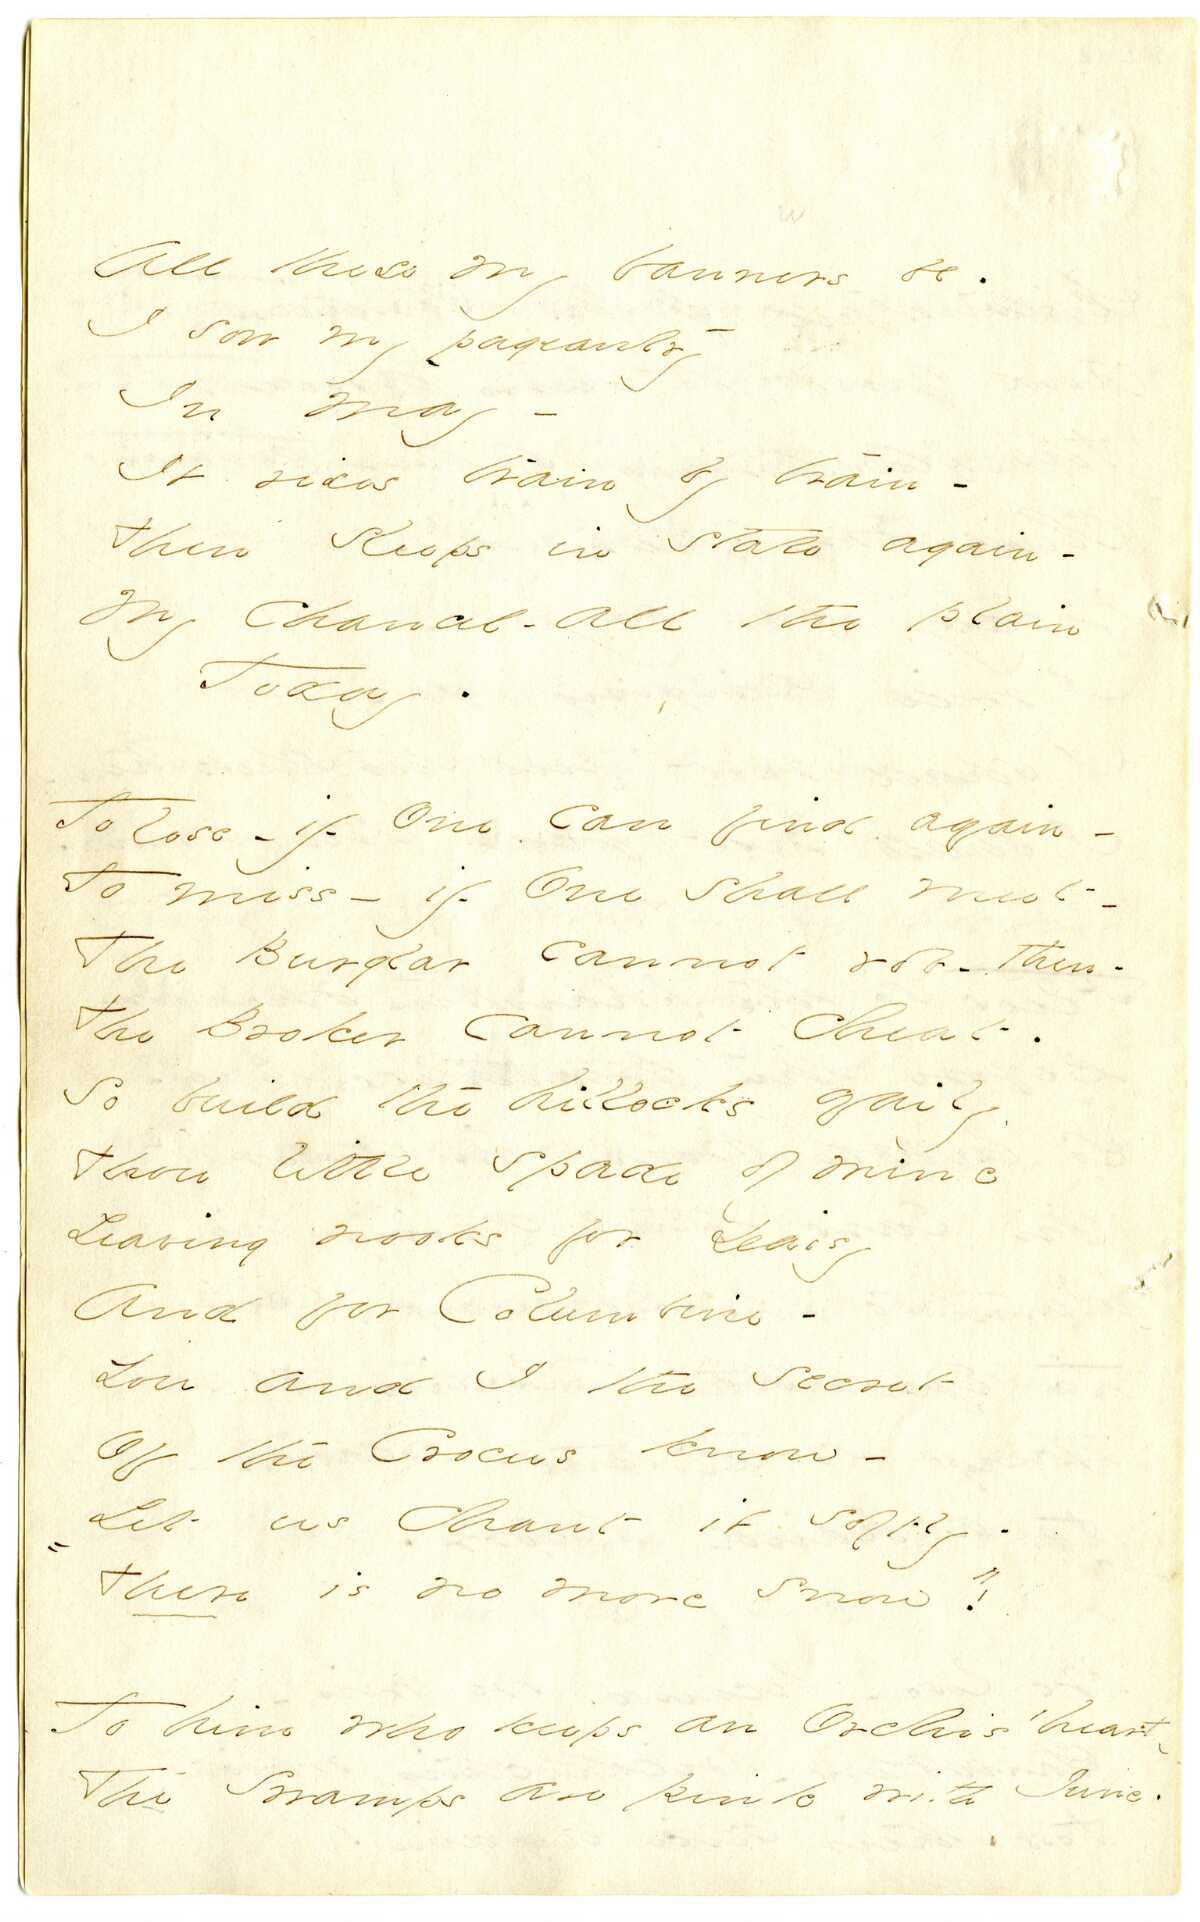 All these my banners be.
I sow my pageantry
In May -
It rises train by train -
Then sleeps in state again -
My chancel - all the plain
Today.
To lose - if One can find again -
To miss - if One shall meet -
The Burglar cannot rob - then -
The Broker cannot cheat.
So build the hillocks gaily
Thou little spade of mine
Leaving nooks for Daisy
And for Columbine -
You and I the secret
Of the Crocus know -
Let us chant it softly -
"There is no more snow"!
To him who keeps an Orchis' heart -
The swamps are pink with June.